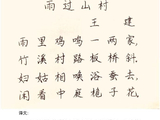 雨过山村
王 建
雨里鸡鸣一两家，
竹溪村路板桥斜。
妇姑相唤浴蚕去，
闲看中庭栀子花。
译文: